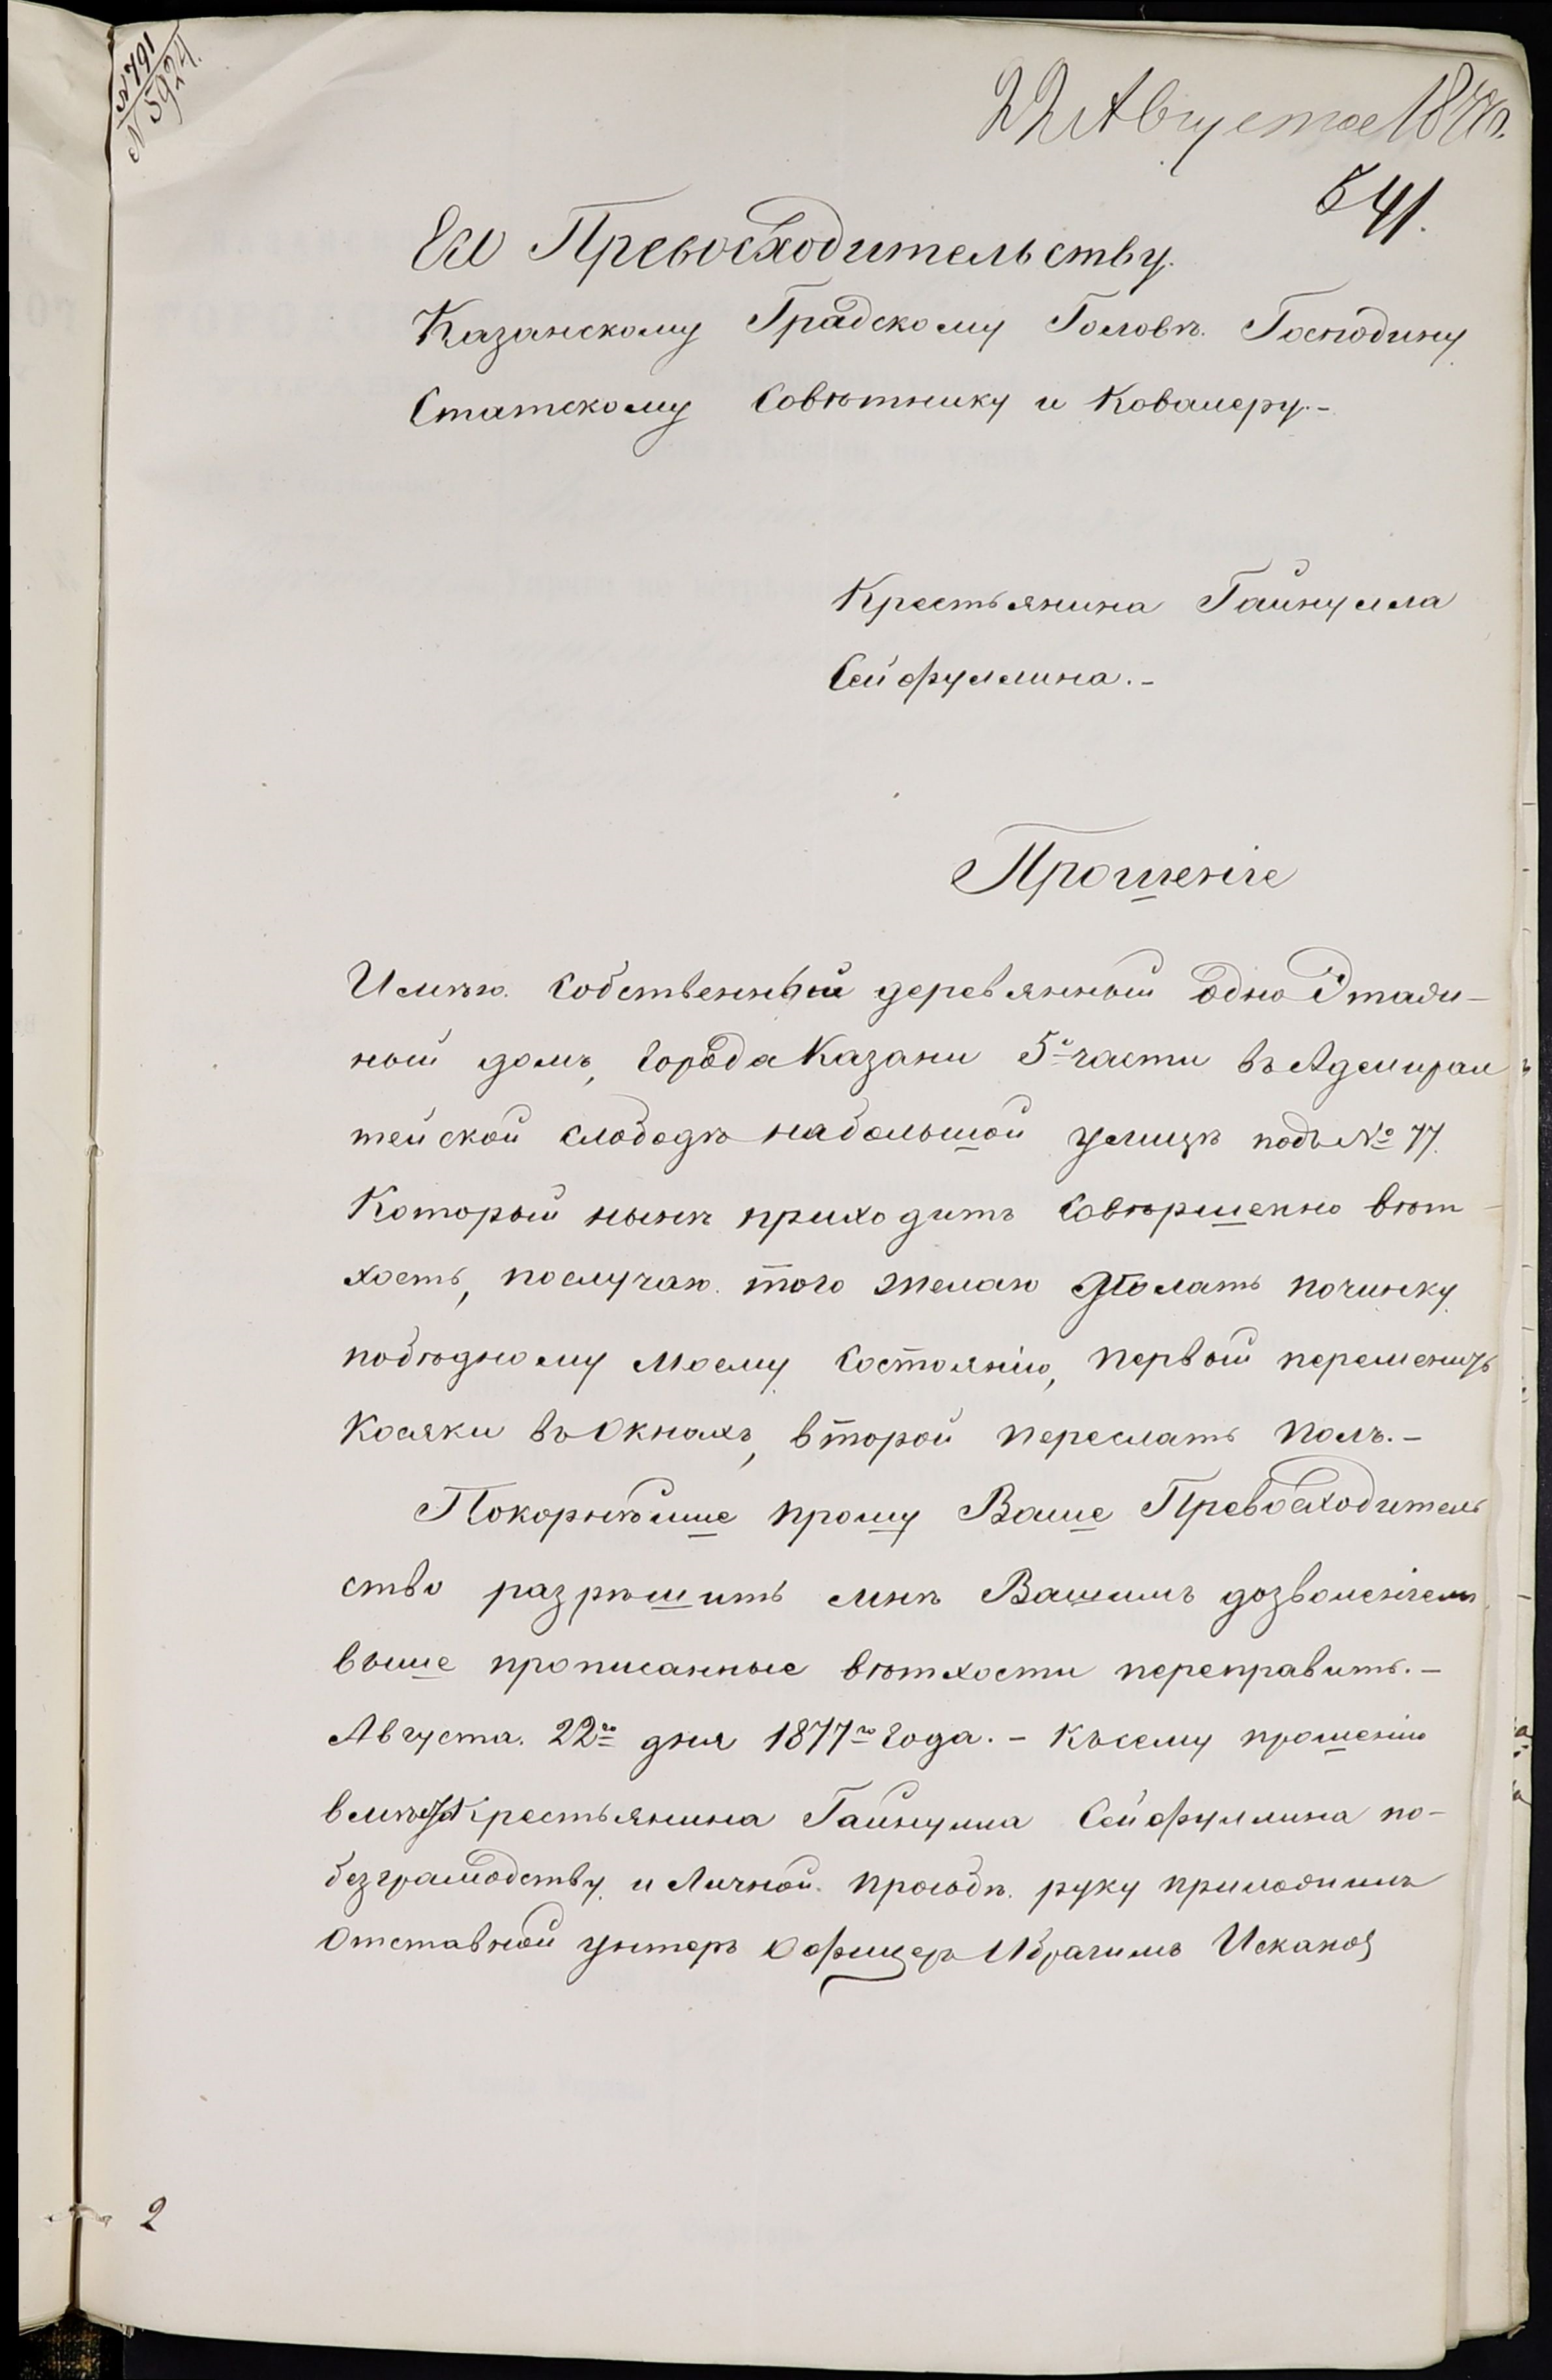 № 791
№ 5924.
22 Августа 1877 г.
541.
Его Превосходительству
Казанскому Градскому Головѣ Господину
Статскому Совѣтнику и Ковалеру.-
Крестьянина Гайнулла
Сейфуллина.-
Прошеніе
Имѣю собственный деревянный одно Этажи-
ный домъ, города Казани 5й части въ Адемирал
тейской слободѣ на большой улицѣ подъ № 77.
Который нынѣ приходитъ совѣршенно вѣт-
хость, послучаю того желаю делать починку
побѣдному моему состоянію, первый переменить
косяки въ окнахъ, второй переслать полъ.-
Покорнѣйше прошу Ваше Превосходитель
ство разрѣшить мнѣ Вашимъ дозволеніемъ
выше прописанные вѣтхости переправить.-
Августа 22го дня 1877го года.- Къ сему прошенію
вмѣсто Крестьянина Гайнулла Сейфуллина по-
безграмодству и Личной прозьбѣ руку приложилъ
Отставной унтеръ Офицеръ Ибрагимъ Искаков
2